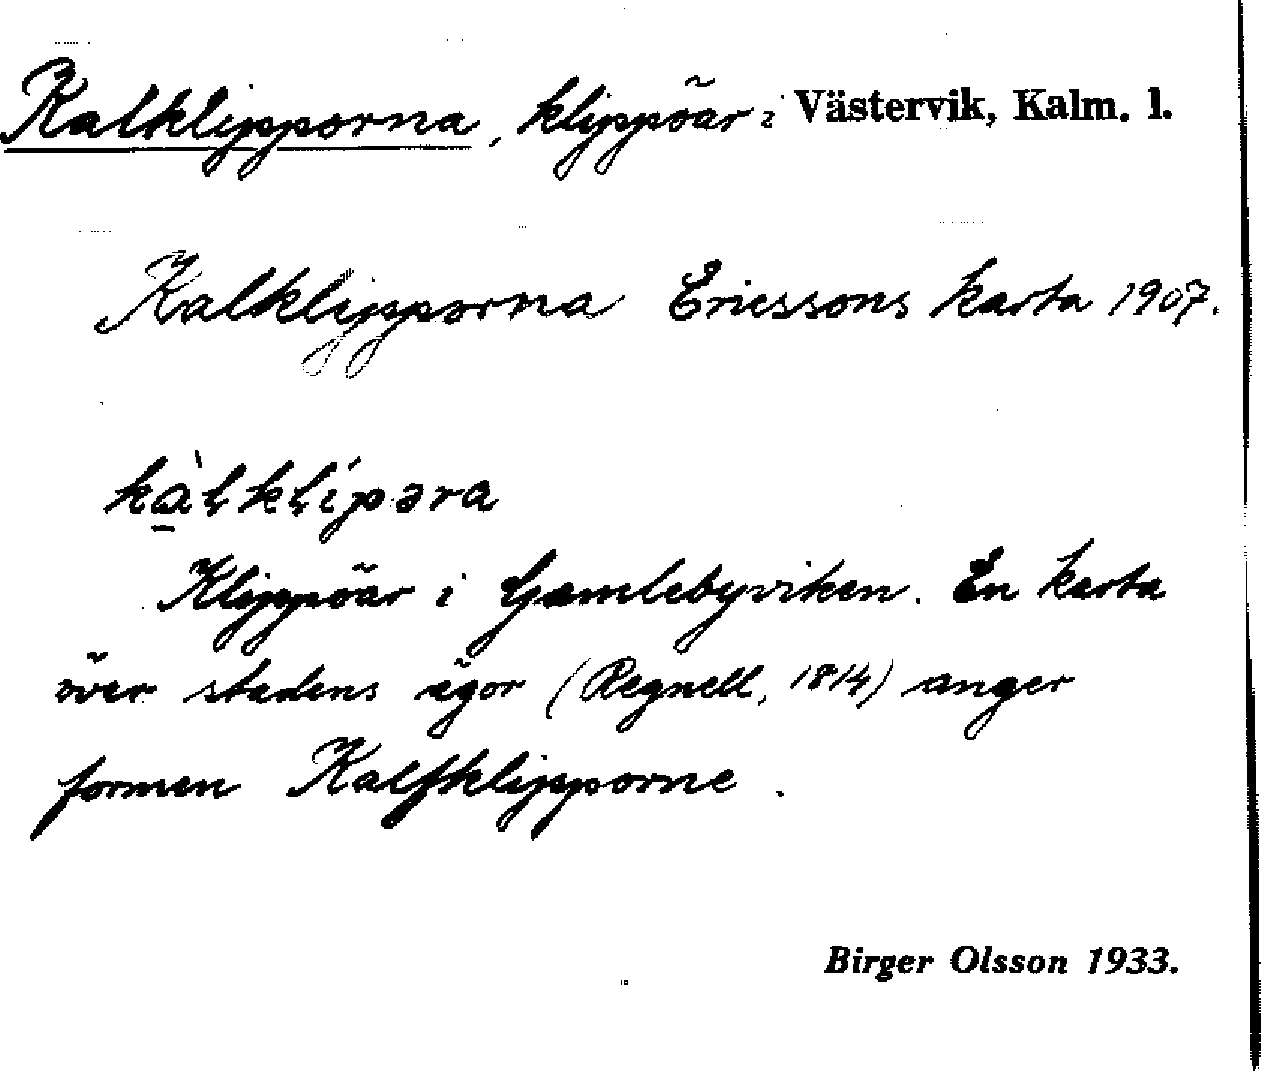 Kalklipporna, klippöar i Västervik, Kalm. l.
Kalklipporna Ericssons karta 1907.
kàlklipəra
Klippöar i Gamlebyviken. En karta
över stadens ägor (Regnell, 1814) anger
formen Kalfklipporne.
Birger Olsson 1933.